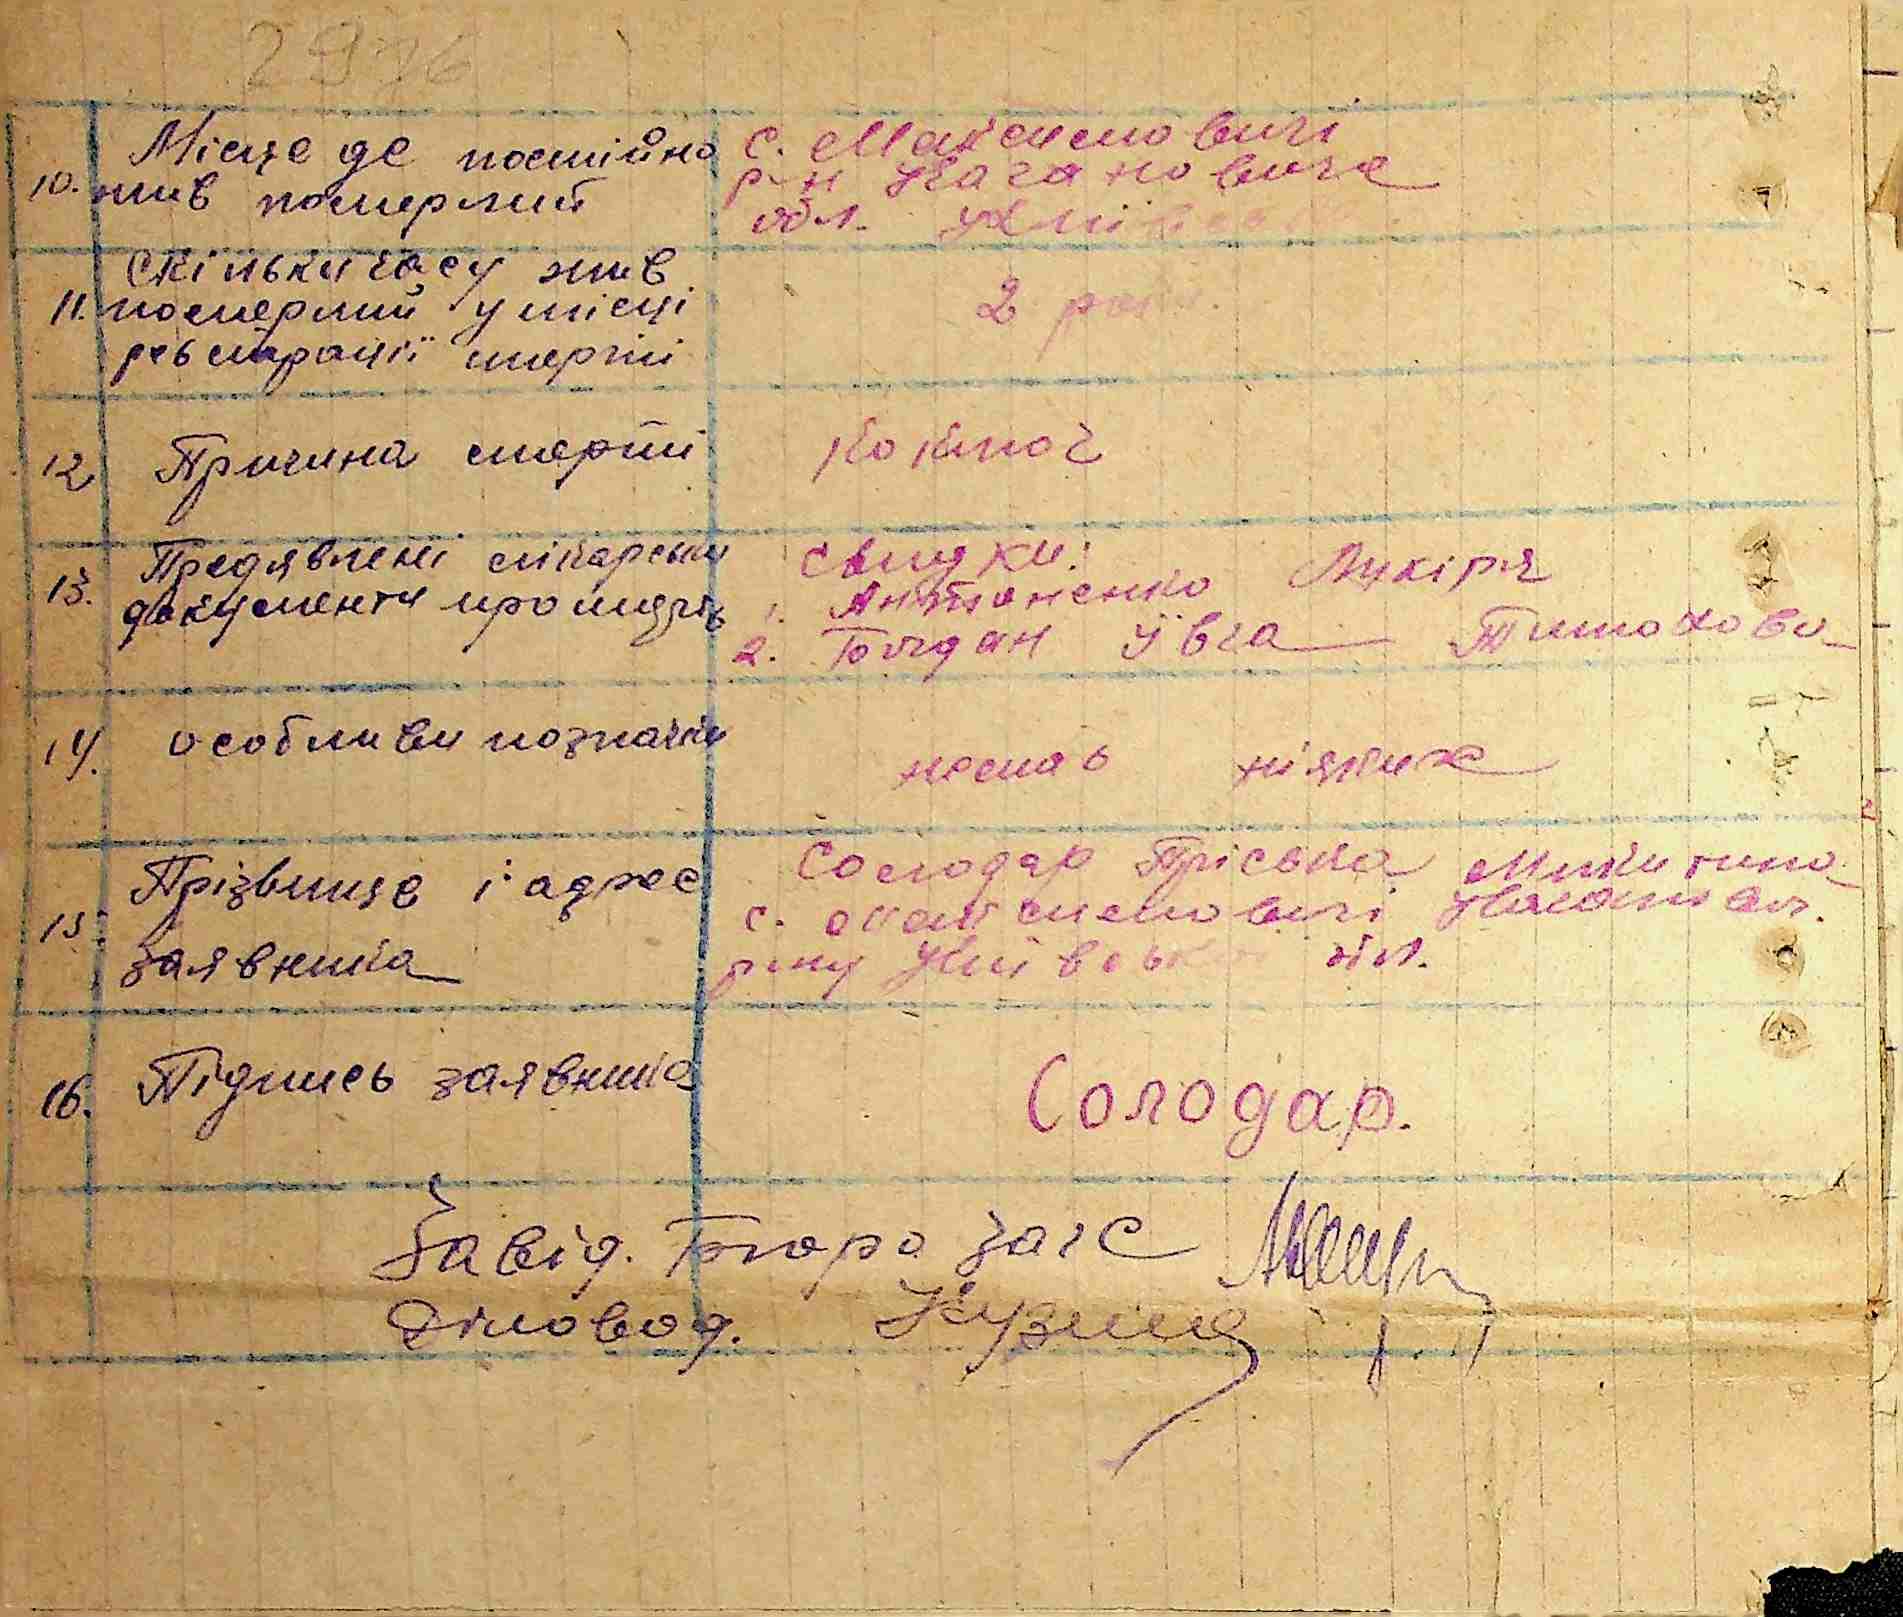 2976
10. Місце де постійно
жив померлий
с. Максимовичі
р-н Кагановиче
обл. Київська
11. Скільки часу жив
померлий у місці
реєстрації смерті
2 роки.
12 Причина смерти
Коключ
13. Предявлені лікарськи
документи про смерть
Свидки:
1. Антоненко Лукіря
2. Богдан Ївга Тимохови
14. Особливи позначки
немає ніяких
15. Прізвище і адрес
заявника
Солодар Пріська Микитина
с. Максимовичі Каганович.
р-ну Київської обл.
16. Підпись заявника
Солодар.
Завід. Бюро Загс
Діловод.